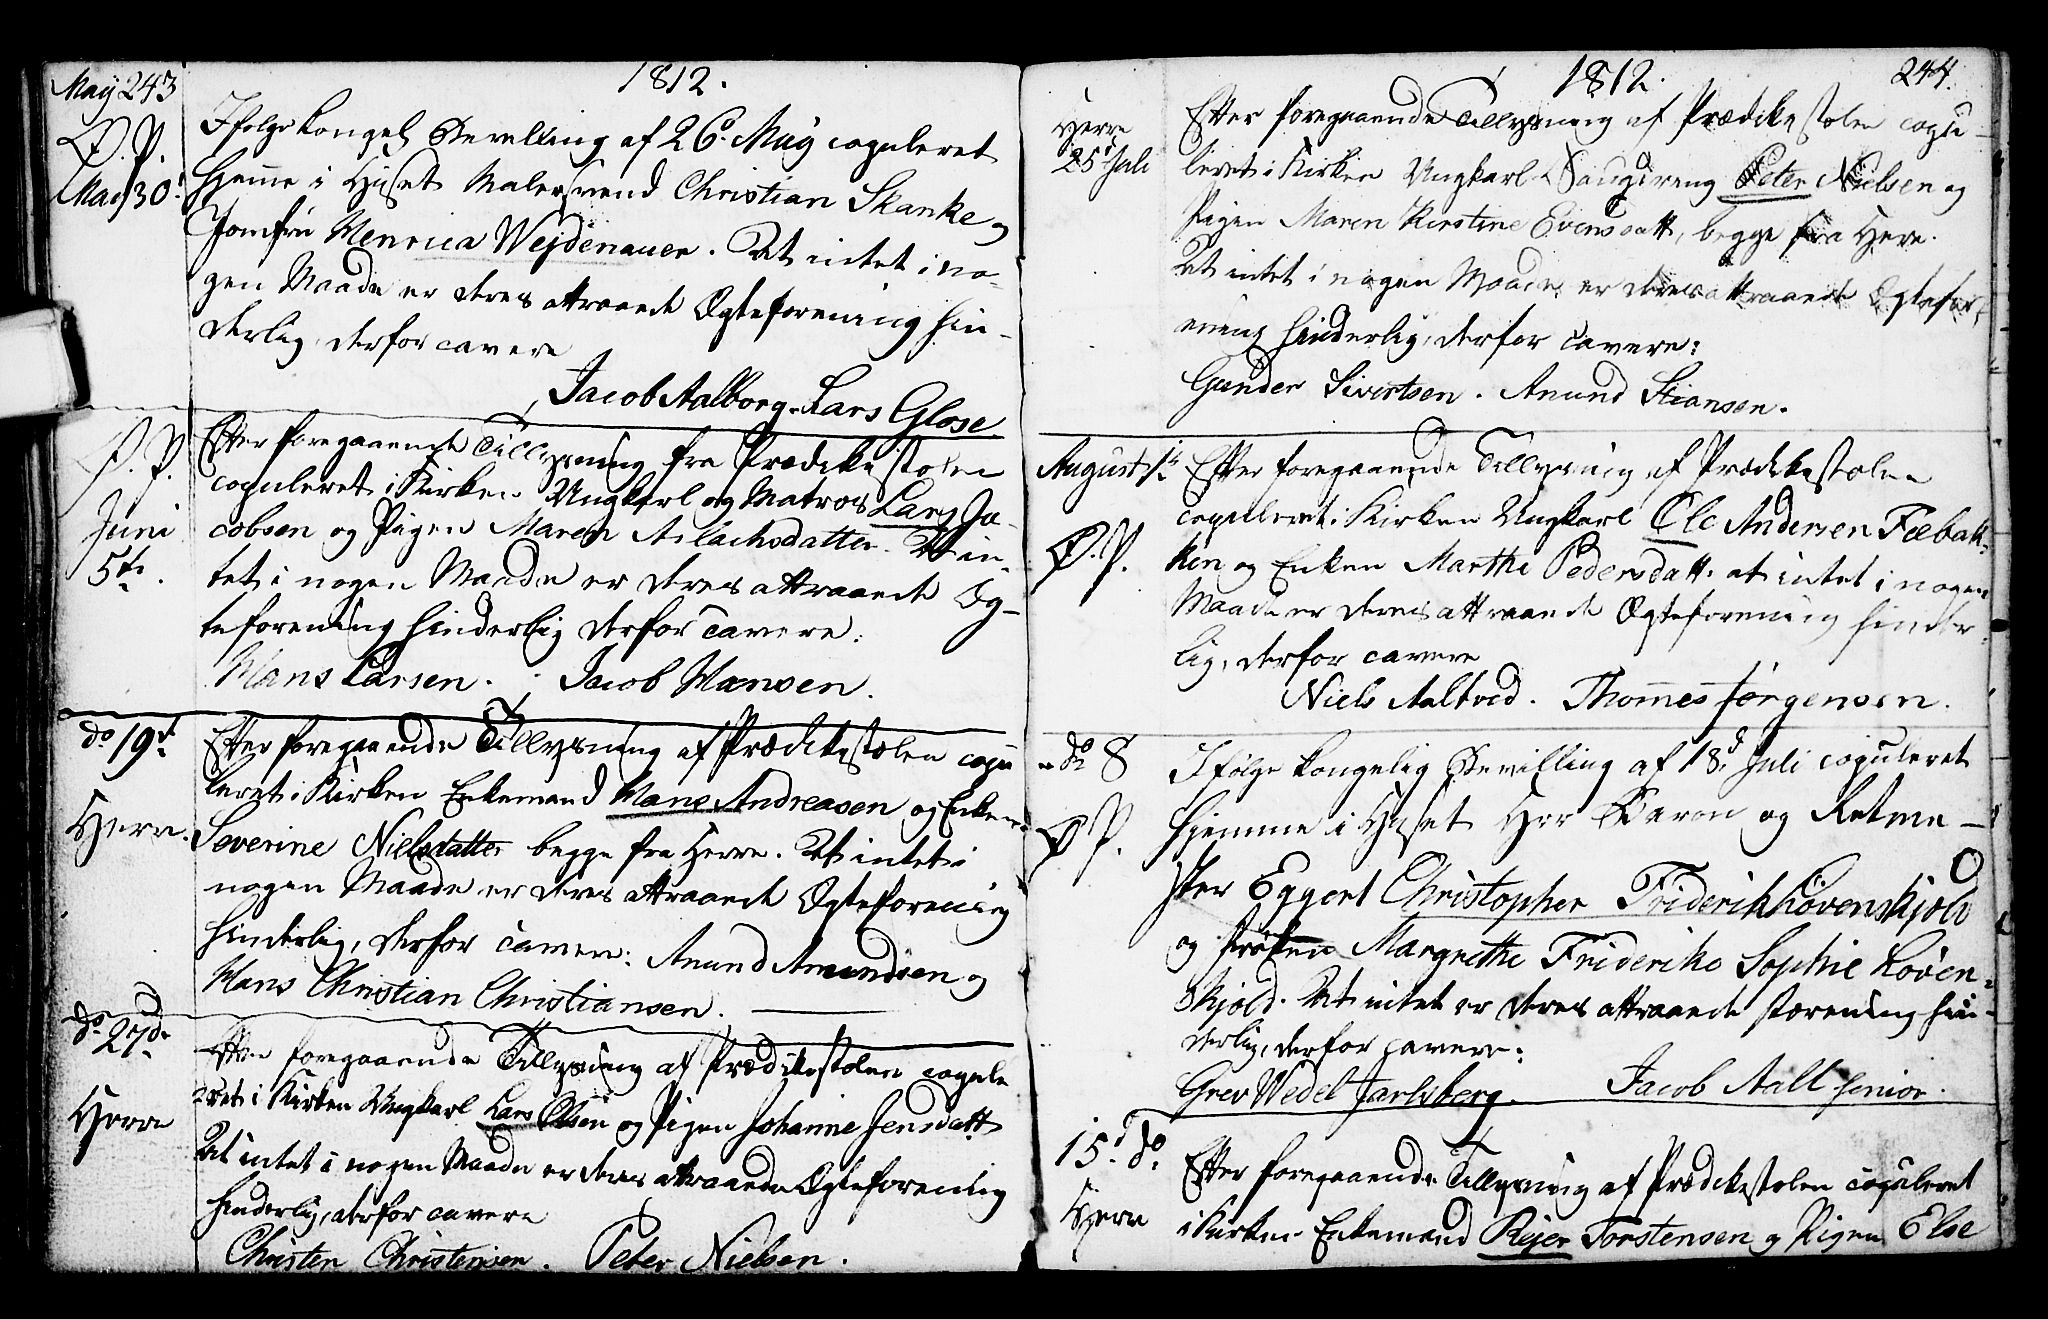 May 243
1812.
Ø. P.
May 30.
Ifølge Kongel. Bevilling af 26. May copuleret
hjemme i Huset Malersvend Christian Skanke og
Jomfru Henrica Wejdenauer. At intet i no-
gen Maade er deres attraaede Ægteforening hin-
derlig, derfor cavere
Jacob Aalborg. Lars Glose
Ø. P.
Juni
5te.
Efter foregaaende Tillysning fra Prædikestolen
copuleret i Kirken Ungkarl og Matros Lars Ja-
cobsen og Pigen Maren Aslachsdatter. At in-
tet i nogen Maade er deres attraaede Æg-
teforening hinderlig derfor cavere:
Hans Larsen. Jacob Hansen.
do 19d.
Herre.
Efter foregaaende Tillysning af Prædikestolen copu
leret i Kirken Enkemand Hans Andreasen og Enken
Severine Nielsdatter begge fra Herre. At intet i
nogen Maade er deres attraaede Ægteforening
hinderlig, derfor cavere: Anund Amundsen og
Hans Christian Christiansen.
do 27de
Herre
Efter foregaaende Tillysning af Prædikestolen copule
ret i Kirken Ungkarl Lars Olsen og Pigen Johanne Jensdatt.
At intet i nogen Maade er deres attraaede Ægteforening
hinderlig, derfor cavere
Christen Christensen. Peter Nielsen.
1812.
244.
Herre
25d Juli
Efter foregaaende Tillysning af Prædikestolen copu-
leret i Kirken Ungkarl Saugdreng Peter Nielsen og
Pigen Maren Kirstine Evensdatt, begge fra Herre.
At intet i nogen Maade er deres attraaede Ægtefor-
ening hinderlig, derfor cavere:
Gunder Sivertsen. Anund Stiansen.
August 1te
Ø. P.
Efter foregaaende Tillysning af Prædikestolen
copuleret i Kirken Ungkarl Ole Andersen Fæbak-
ken og Enken Marthe Pedersdatt. at intet i nogen
Maade er deres attraaede Ægteforening hinder-
lig, derfor cavere
Niels Aaltvid. Thommes Jørgensen.
do 8
Ø P.
Ifølge kongelig Bevilling af 18d. Juli copuleret
hjemme i Huset Herr Baron og Retme-
ster Eggert Christopher Friderik Løvenskjold
og Frøken Margrethe Friderike Sophie Løven-
skjold. At intet er deres attraaede Forening hin-
derlig, derfor cavere:
Grev Wedel Jarlsberg. Jacob Aall senior.
15d. do.
Herre
Efter foregaaende Tillysning af Prædikestolen copuleret
i Kirken Enkemand Rejer Torstensen og Pigen Else